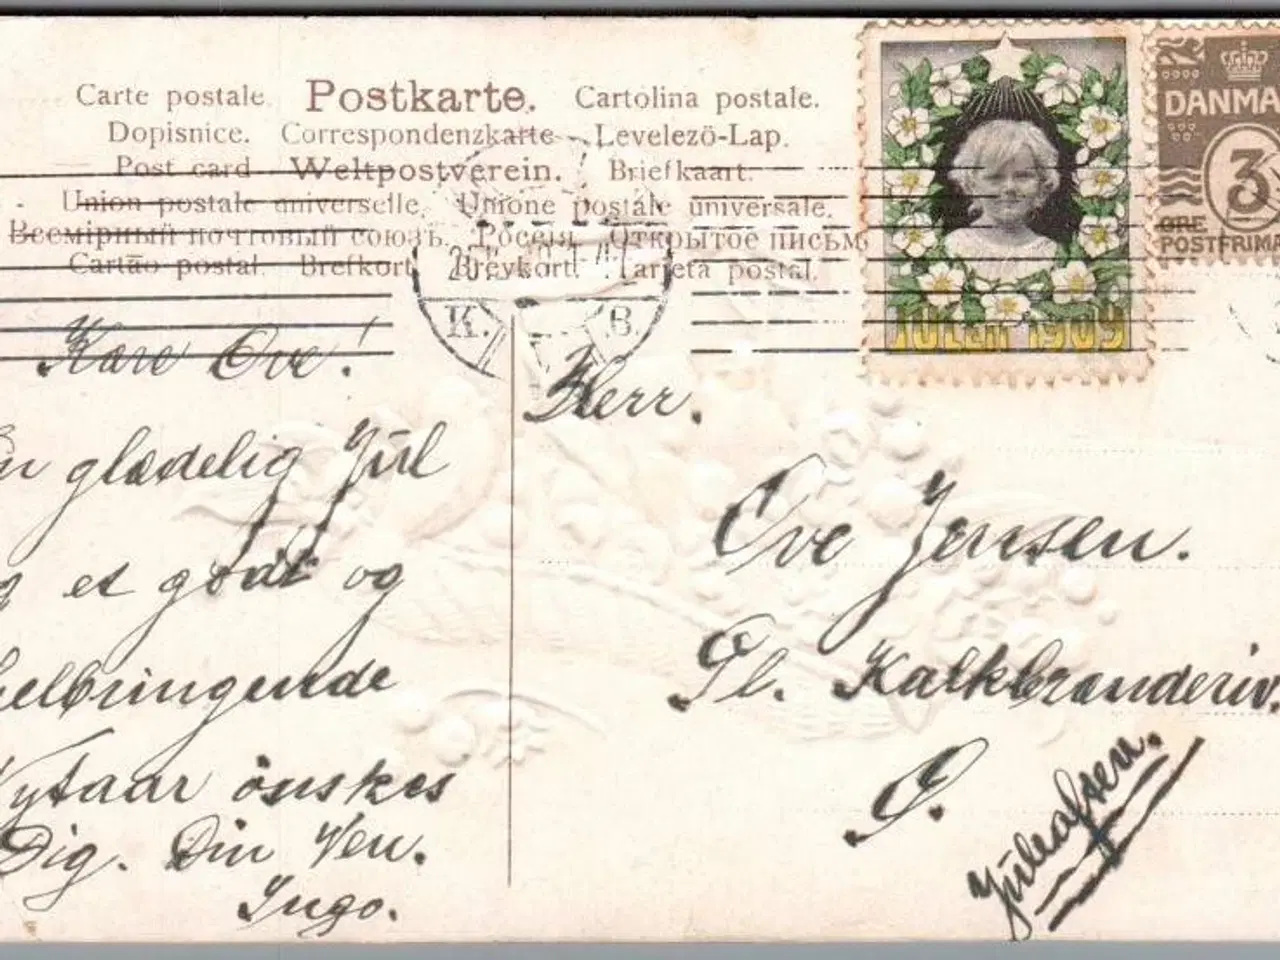 Carte postale. Postkarte. Cartolina postale.
Dopisnice. Correspondenzkarte - Levelező-Lap.
Post card Weltpostverein. Briefkaart.
Union postale universelle. Unione postale universale.
Всемірный почтовый союзъ. Россія. Открытое письмо
Cartão postal. Brefkort. Brevkort. Tarjeta postal.
K. B.
JULEN 1909
DANMA
3
ØRE
POSTFRIM
Kære Ove!
En glædelig Jul
og et godt og
helbringende
Nytaar önskes
Dig. Din Ven.
Ingo.
Herr.
Ove Jensen.
Gl. Kalkbrænderiv.
Ø.
Juleaften.